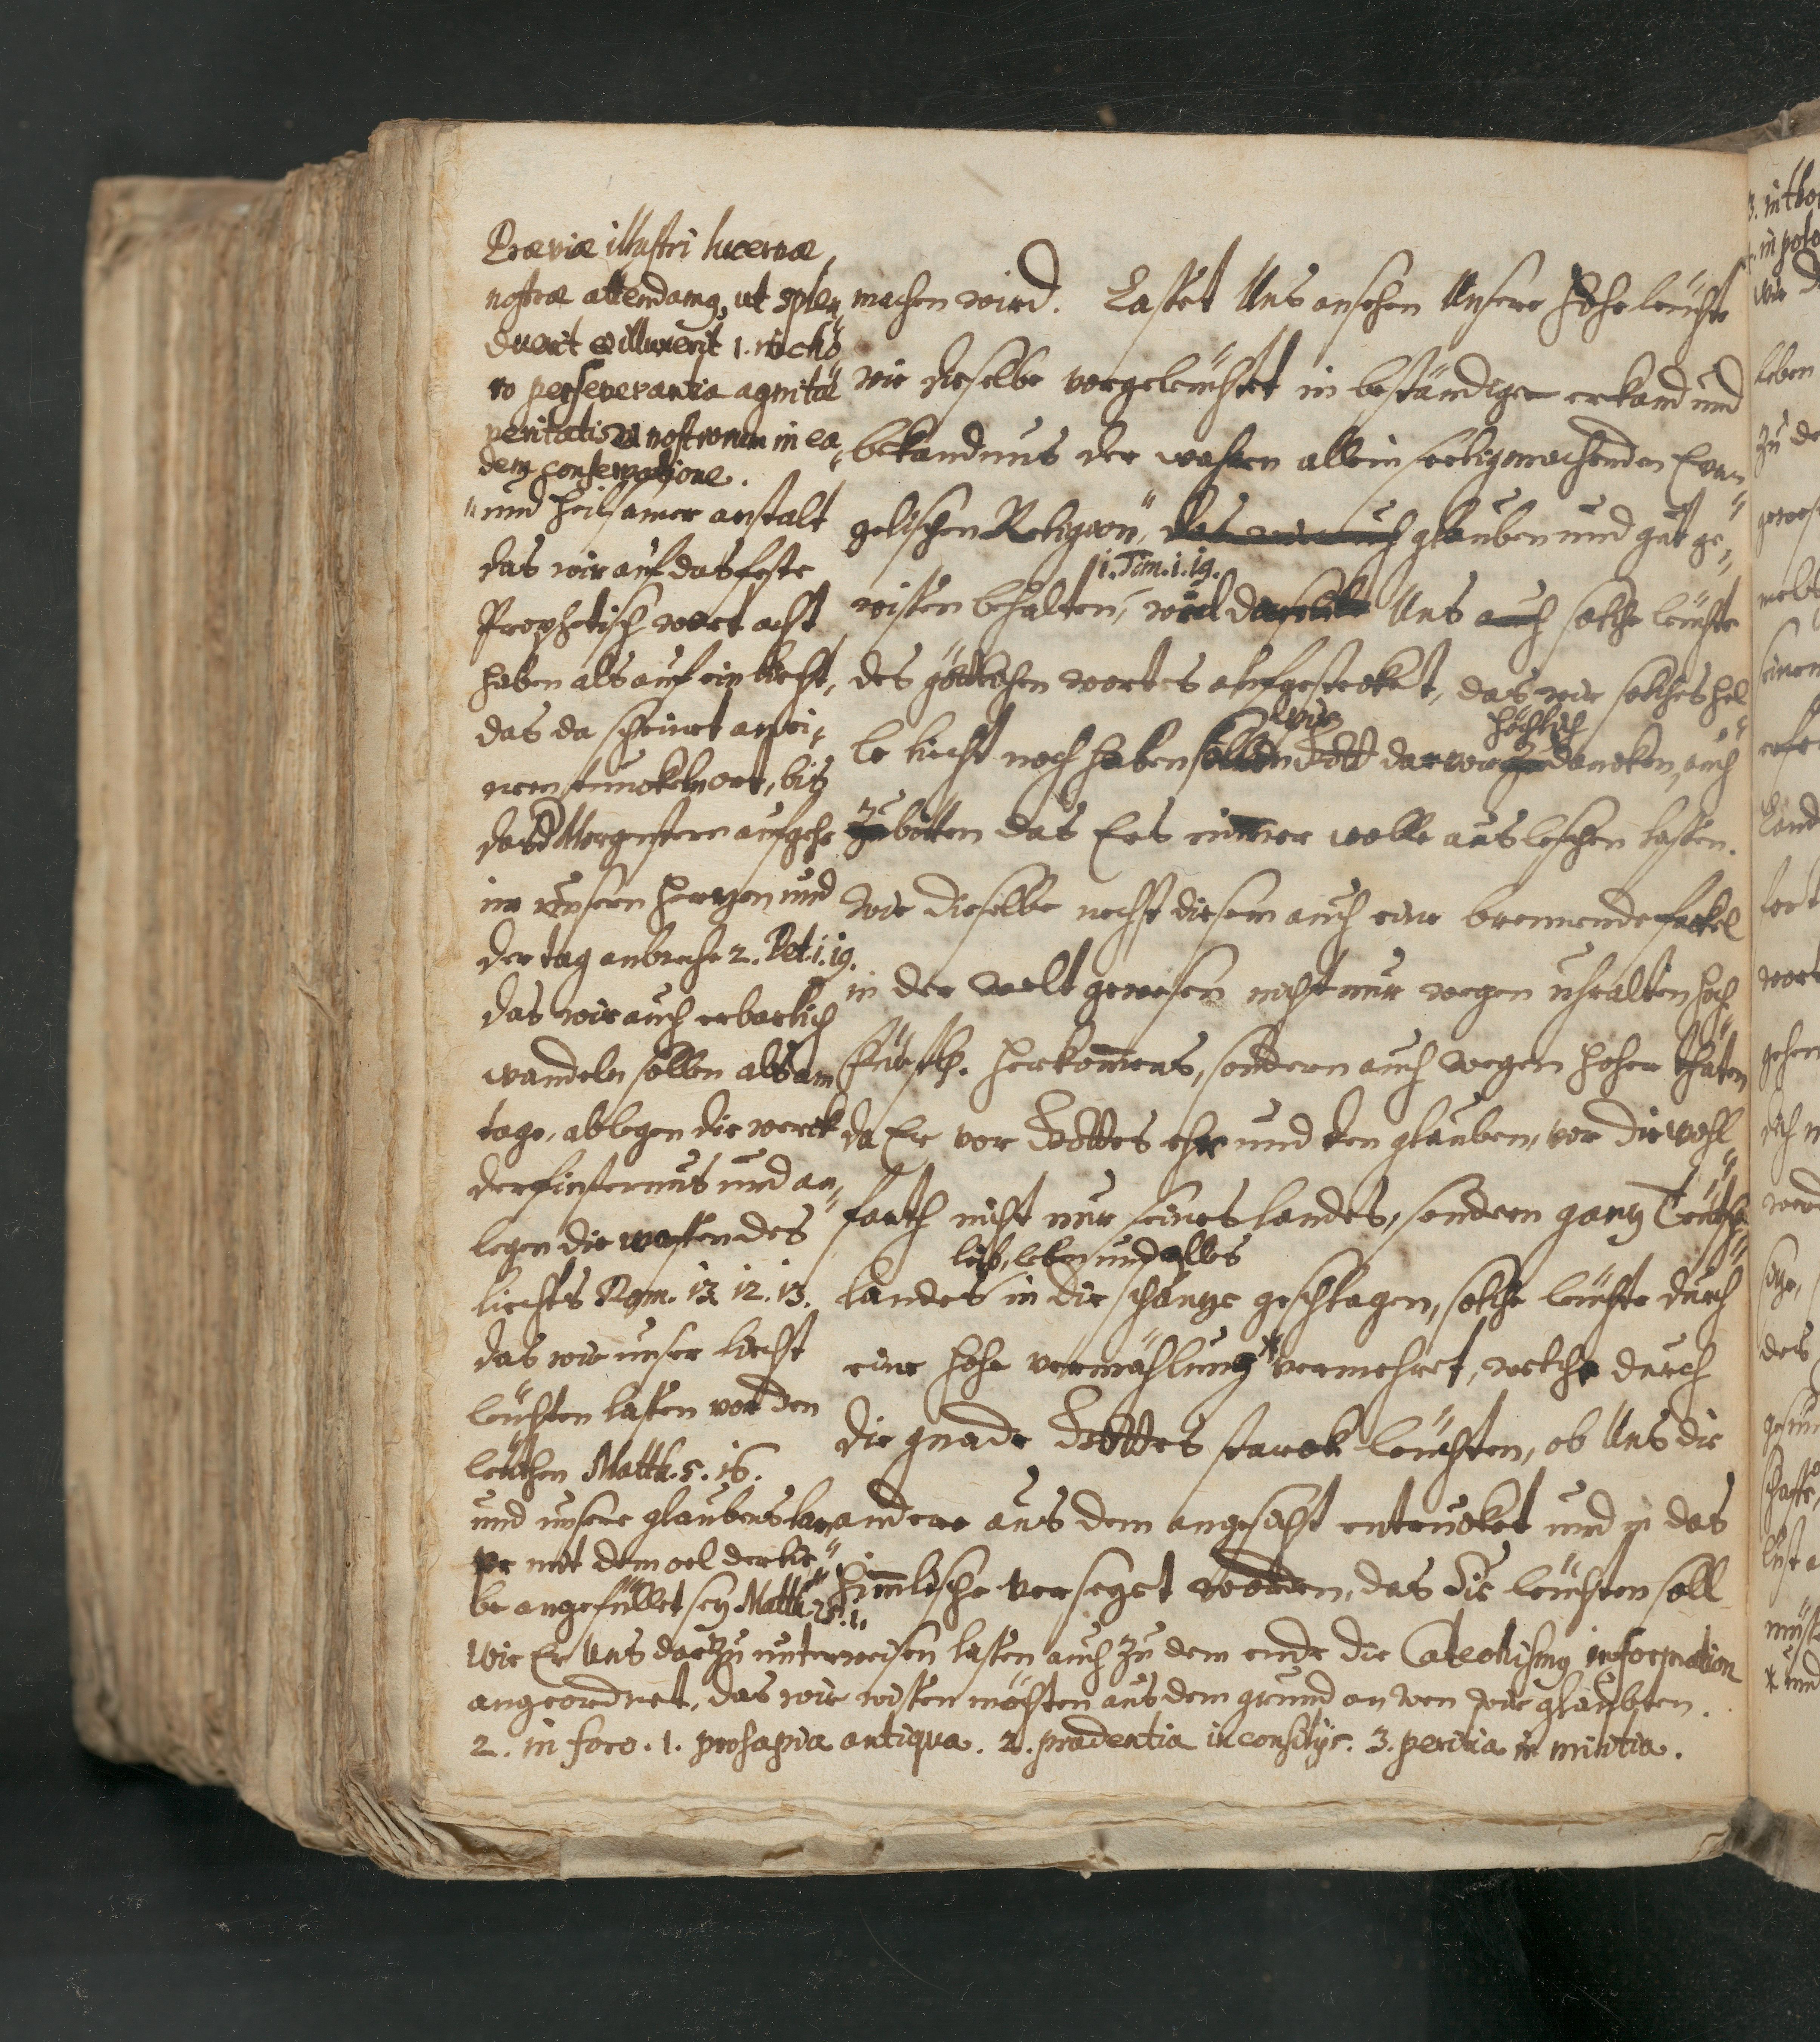 Praeviae illustri lucernae
nostrae attendamus, ut splen-
duerit et illuxerit 1. in cho-
ro perseverantia agnitae
veritatis et nostrorum in ea-
dem conservatione.
und heilsamer anstalt
das wir auf das feste
Prophetisch wort acht
haben als auf ein liecht,
das da scheinet an ei-
nem tunckeln ort, biß
das d Morgenstern aufgehe
in unsern hertzen und
der tag anbreche 2. Pet. 1. 19.
das wir auch erbarlich
wandeln sollen als am
tage, ablegen die werck
der finsternus und an-
legen die waffen des
liechts Rom. 13. 12. 13.
das wir unser liecht
leuchten lassen vor den
leuthen Matth. 5. 16.
und unsere glaubens lam-
pe mit dem oel der lie-
be angefüllet sey Matth. 25. 1.
machen wird. Lasset Uns ansehen Unsere Hohe leuchte
wie dieselbe vorgeleuchtet in beständiger erkand und
bekandnus der wahren allein seeligmachenden Evan-
gelischen Religion, das wir auch glauben und gut ge-
1. Tim. 1. 19.
wissen behalten, weil dieselbe Uns auch solche leuchte
des göttlichen wortes aufgestecket, das wir solches hel-
wir höchlich
le liecht noch haben sollen Gott darvor zu dancken, auch
zu bitten das Ers nimmer wolle auslöschen lassen.
Wie dieselbe nechst diesem auch eine brennende fackel
in der welt gewesen nicht nur wegen uhralten hoch-
Fürstl. herkommens, sondern auch wegen hoher thaten
da Er vor Gottes ehr und den glauben, vor die wohl-
farth nicht nur seines landes, sondern gantz Teutsch-
leib, leben und alles
landes in die schantze geschlagen, solche leuchte durch
eine hohe vermählung * vermehret, welche durch
die gnade Gottes starck leuchten, ob Uns die
andere aus dem angesicht entrucket und in das
himmlische versetzet worden, das die leuchten soll
Wie Er Uns darzu unterweisen lassen auch zu dem ende die Catechismus information
angeordnet, das wir wissen möchten aus dem grund an wen wir glaubten.
2. in foro. 1. prosapia antiqua. 2. prudentia in consilijs. 3. peritia in militia.